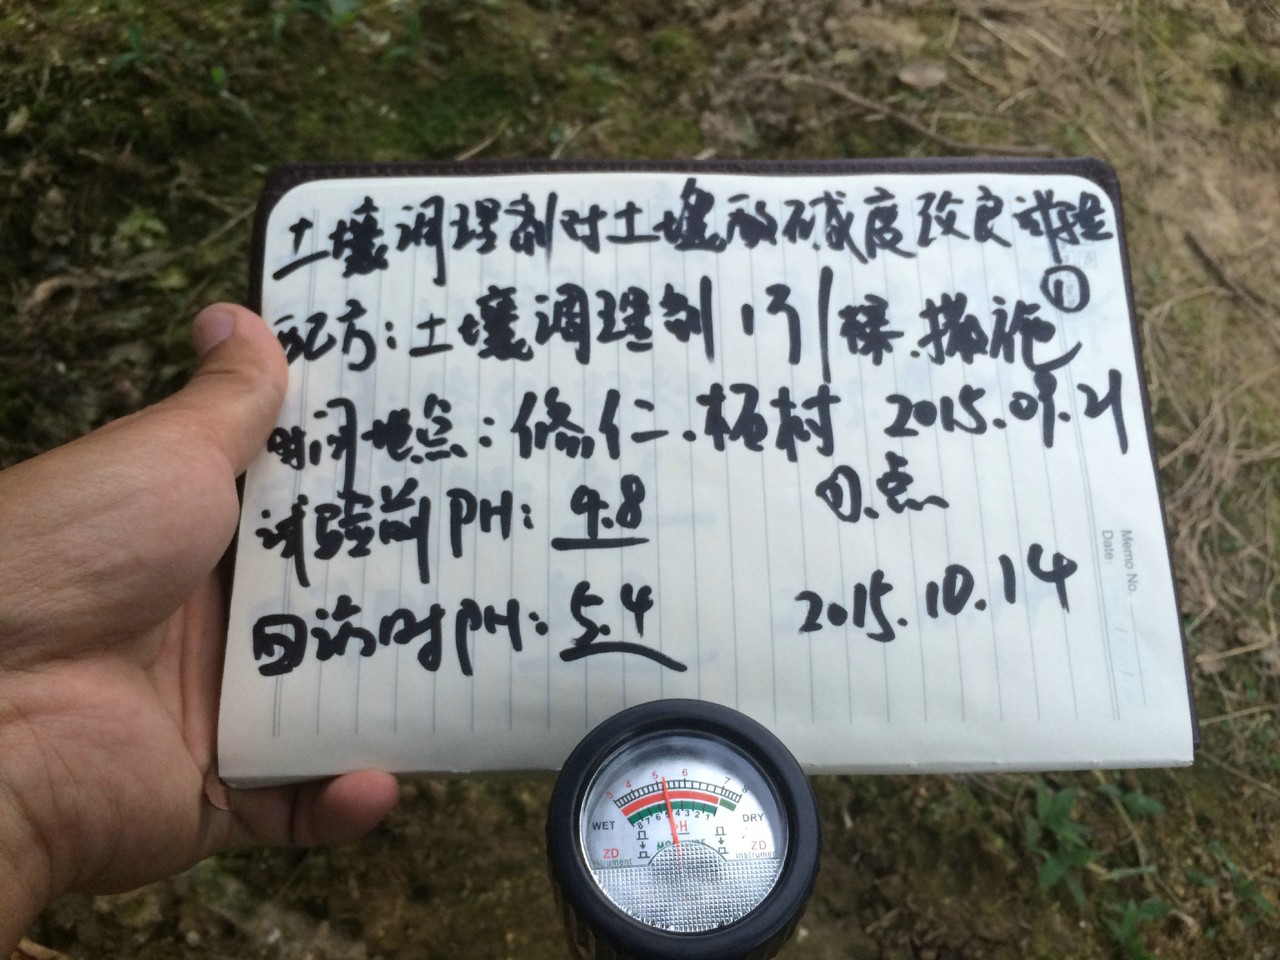 土壤调理剂对土壤酸碱度改良试验
①
配方：土壤调理剂 1斤/棵.撒施
时间地点：修仁.柘村 2015.09.21
试验前PH：4.8 ①.点
回访时PH：5.4 2015.10.14
Memo No.
Date:
3 4 5 6 7 8
8 7 6 5 4 3 2 1
WET DRY
PH
ZD ZD
instrument